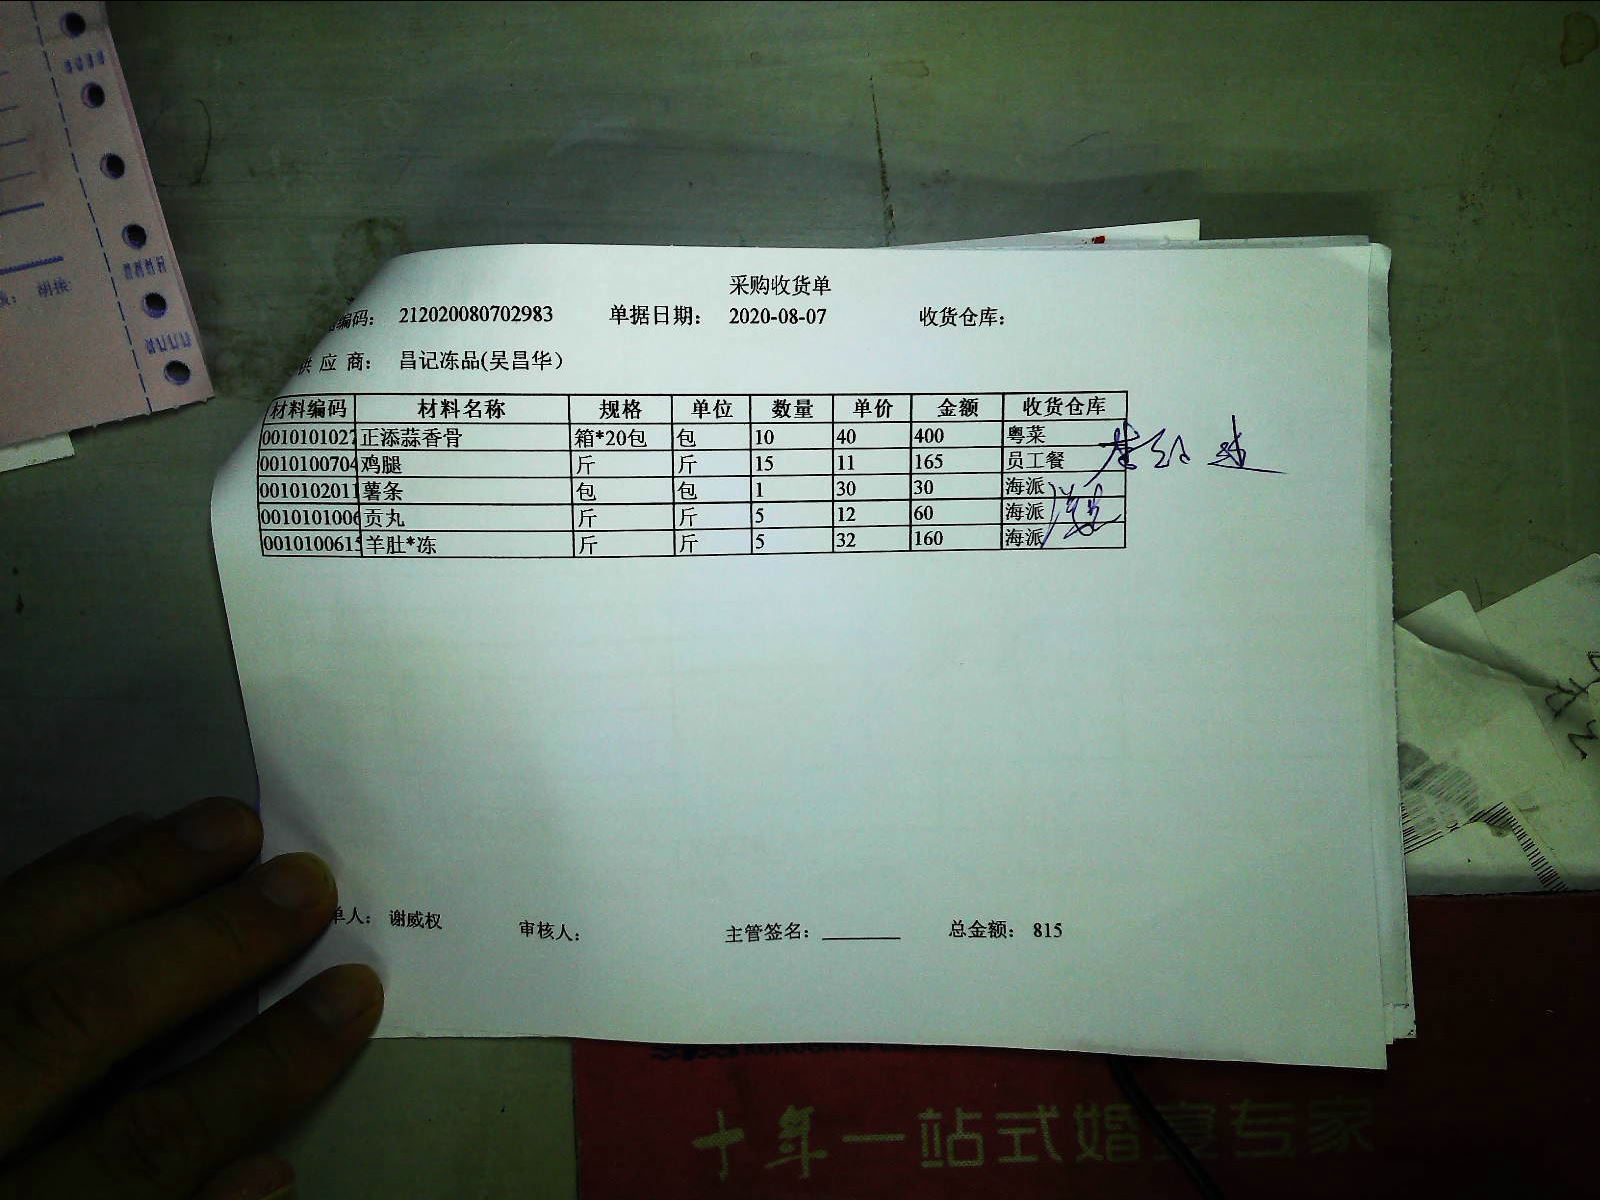 采购收货单
编码： 212020080702983 单据日期： 2020-08-07 收货仓库：
供 应 商： 昌记冻品(吴昌华)
材料编码 材料名称 规格 单位 数量 单价 金额 收货仓库
0010101027 正添蒜香骨 箱*20包 包 10 40 400 粤菜
0010100704 鸡腿 斤 斤 15 11 165 员工餐
0010102011 薯条 包 包 1 30 30 海派
0010101006 贡丸 斤 斤 5 12 60 海派
0010100615 羊肚*冻 斤 斤 5 32 160 海派
单人： 谢威权 审核人： 主管签名： 总金额： 815
十年一站式婚宴专家